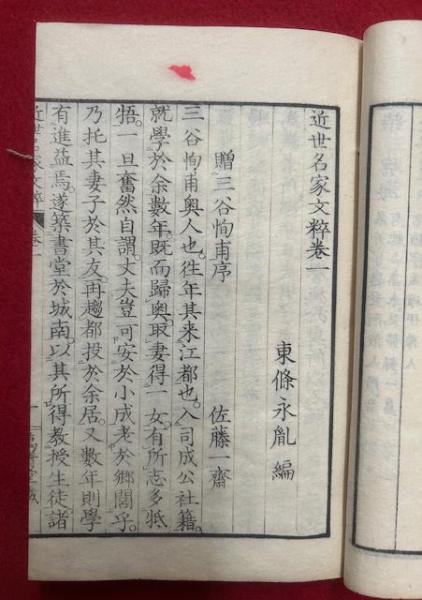 近世名家文粹卷一
東條永胤編
贈三谷恂甫序
佐藤一齋
三谷恂甫奧人也。往年其来江都也。入司成公社籍。
就學於余數年。既而歸奧。取妻得一女。有所志多牴
牾。一旦奮然自謂。丈夫豈可安於小成老於鄉閭乎。
乃托其妻子於其友。再趨都投於余居。又數年則學
有進益焉。遂築書堂於城南。以其所得教授生徒諸
近世名家文粹
卷一
一